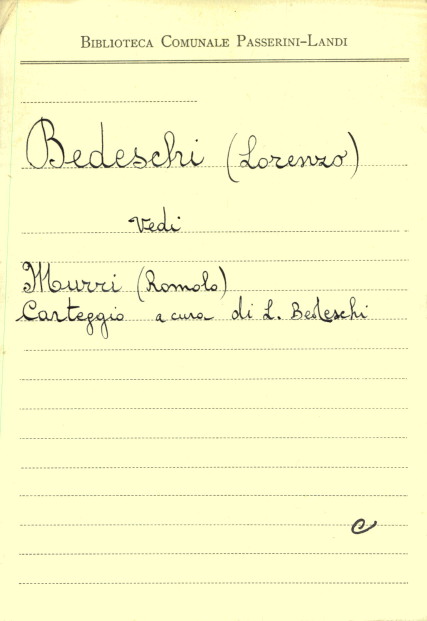 BIBLIOTECA COMUNALE PASSERINI-LANDI
Bedeschi (Lorenzo)
Vedi
Murri (Romolo)
Carteggio a cura di L. Bedeschi
C